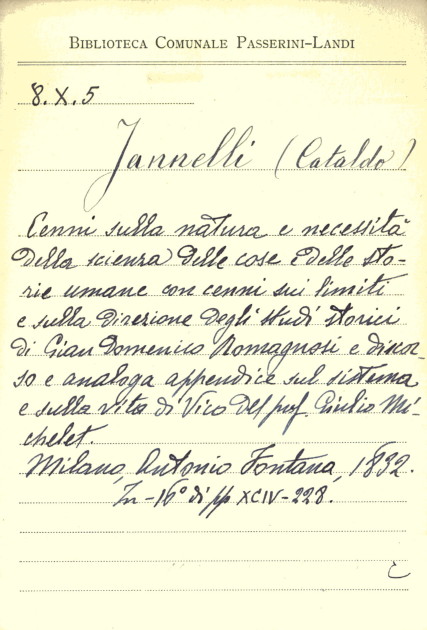 BIBLIOTECA COMUNALE PASSERINI-LANDI
8.X.5
Jannelli (Cataldo)
Cenni sulla natura e necessità
della scienza delle cose e delle sto-
rie umane con cenni sui limiti
e sulla direzione degli studi storici
di Gian Domenico Romagnosi e discor-
so e analoga appendice sul sistema
e sulla vita di Vico del prof. Giulio Mi-
chelet.
Milano, Antonio Fontana, 1832.
In-16° di pp XCIV-228.
C